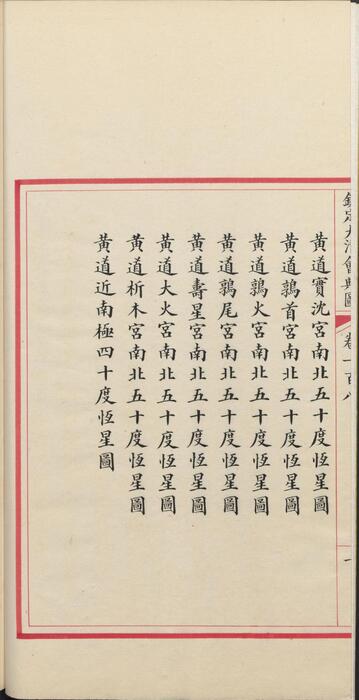 欽定大清會典圖
卷一百八
一
黃道實沈宮南北五十度恆星圖
黃道鶉首宮南北五十度恆星圖
黃道鶉火宮南北五十度恆星圖
黃道鶉尾宮南北五十度恆星圖
黃道壽星宮南北五十度恆星圖
黃道大火宮南北五十度恆星圖
黃道析木宮南北五十度恆星圖
黃道近南極四十度恆星圖